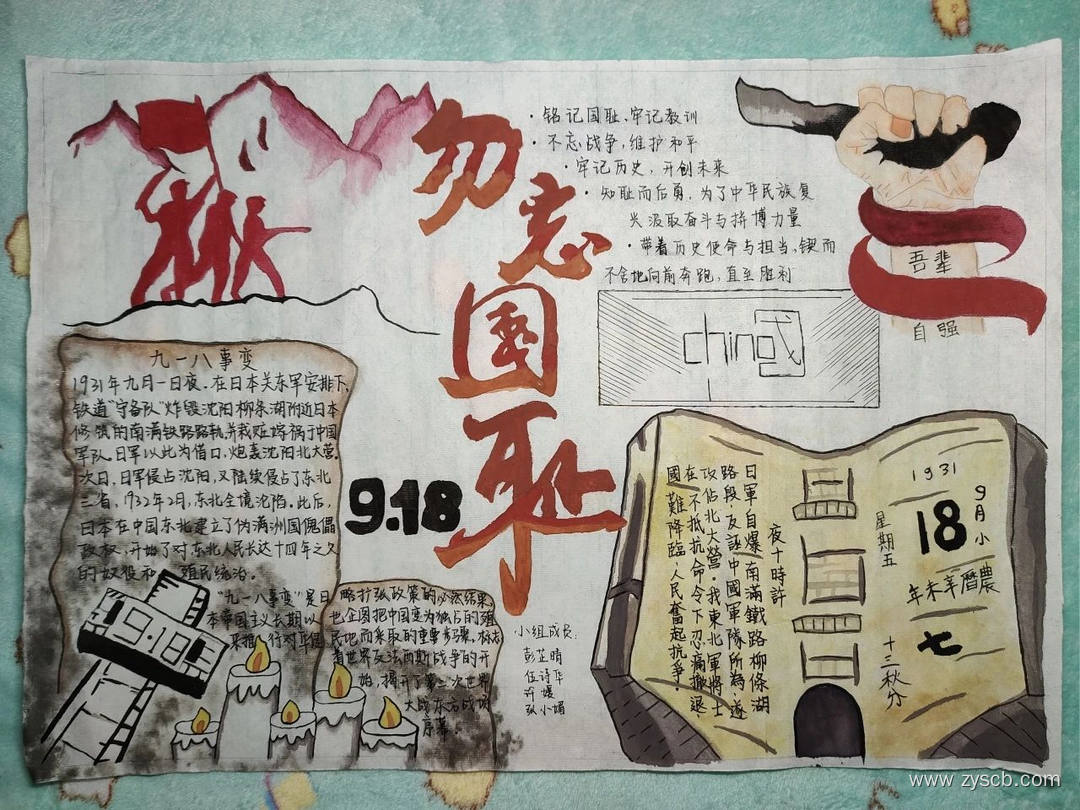 勿忘国耻
9.18
·铭记国耻、牢记教训
·不忘战争，维护和平
·牢记历史，开创未来
·知耻而后勇，为了中华民族复
兴汲取奋斗与拼博力量
·带着历史使命与担当，锲而
不舍地向前奔跑，直至胜利
吾辈
自强
china
九一八事变
1931年九月一日夜，在日本关东军安排下，
铁道"守备队"炸毁沈阳柳条湖附近日本
修筑的南满铁路路轨，并栽赃嫁祸于中国
军队。日军以此为借口，炮轰沈阳北大营。
次日，日军侵占沈阳，又陆续侵占了东北
三省，1932年2月，东北全境沈陷。此后，
日本在中国东北建立了伪满洲国傀儡
政权，开始了对东北人民长达十四年之久
的奴役和 殖民统治。
"九一八事变"是日
本帝国主义长期以
来推行对华侵
略扩张政策的必然结果，
也企图把中国变为独占的殖
民地而采取的重要步骤。标志
着世界反法西斯战争的开
始，揭开了第二次世界
大战东方战场
序幕。
9·18
小组成员：
彭芷晴
伍诗华
许媛
1931
9月小
18
星期五
農曆辛未年
七
十三秋分
夜十時許
日軍自爆南滿鐵路柳條湖
路段，反誣中國軍隊所為，遂
攻佔北大營。我東北軍將士
在不抵抗命令下忍痛撤退，
國難降臨，人民奮起抗爭。
www.zyscb.com